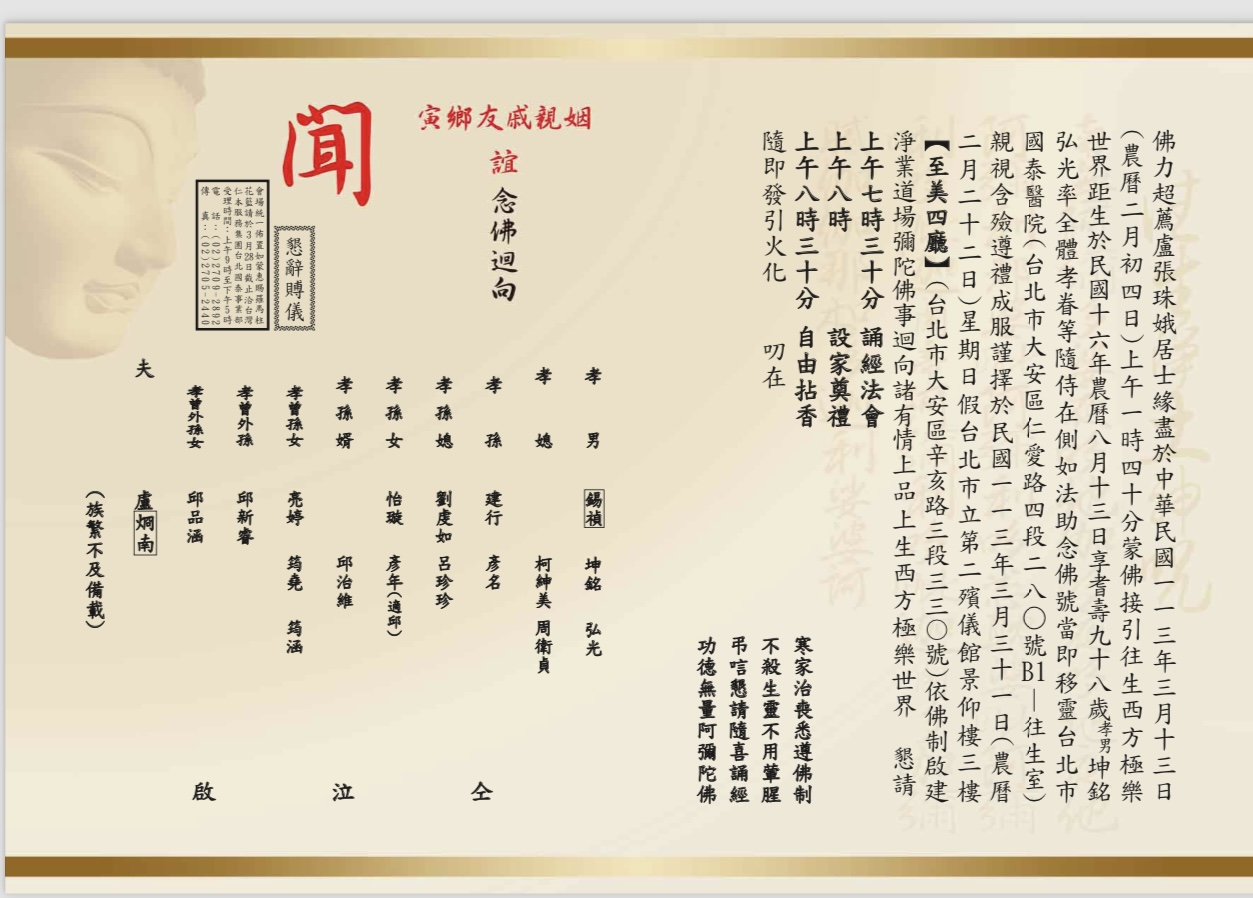 佛力超薦盧張珠娥居士緣盡於中華民國一一三年三月十三日
(農曆二月初四日)上午一時四十分蒙佛接引往生西方極樂
世界距生於民國十六年農曆八月十三日享耆壽九十八歲孝男坤銘
弘光率全體孝眷等隨侍在側如法助念佛號當即移靈台北市
國泰醫院(台北市大安區仁愛路四段二八〇號B1—往生室)
親視含殮遵禮成服謹擇於民國一一三年三月三十一日(農曆
二月二十二日)星期日假台北市立第二殯儀館景仰樓三樓
【至美四廳】(台北市大安區辛亥路三段三三〇號)依佛制啟建
淨業道場彌陀佛事迴向諸有情上品上生西方極樂世界 懇請
上午七時三十分 誦經法會
上午八時 設家奠禮
上午八時三十分 自由拈香
隨即發引火化 叨在
寒家治喪悉遵佛制
不殺生靈不用葷腥
弔唁懇請隨喜誦經
功德無量阿彌陀佛
姻親戚友鄉寅
誼 念佛迴向
聞
懇辭賻儀
會場統一佈置如蒙惠賜羅馬柱
花籃請於3月28日截止洽台灣
仁本服務集團台北國泰事業部
受理時間:上午9時至下午5時
電話:(02)2709-2892
傳真:(02)2705-2440
孝男 錫禎 坤銘 弘光
孝媳 柯紳美 周衛貞
孝孫 建行 彥名
孝孫媳 劉虔如 呂珍珍
孝孫女 怡璇 彥年(適邱)
孝孫婿 邱治維
孝曾孫女 亮婷 筠堯 筠涵
孝曾外孫 邱新睿
孝曾外孫女 邱品涵
夫 盧炯南
(族繁不及備載)
仝 泣 啟